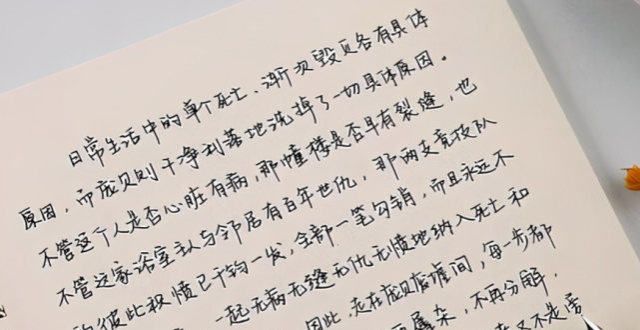 日常生活中的单个死亡、渐次毁灭各有具体
原因，而庞贝则干净利落地洗掉了一切具体原因。
不管这个人是否心脏有病，那幢楼是否早有裂缝，也
不管这家浴室主人与邻居有百年世仇，那两支竞技队
的彼此积愤已千钧一发，全部一笔勾销，而且永远不
一起无病无缝无仇无愤地纳入死亡和
因此，走在庞贝废墟间，每一步都
属杂，不再分解，
又不是旁